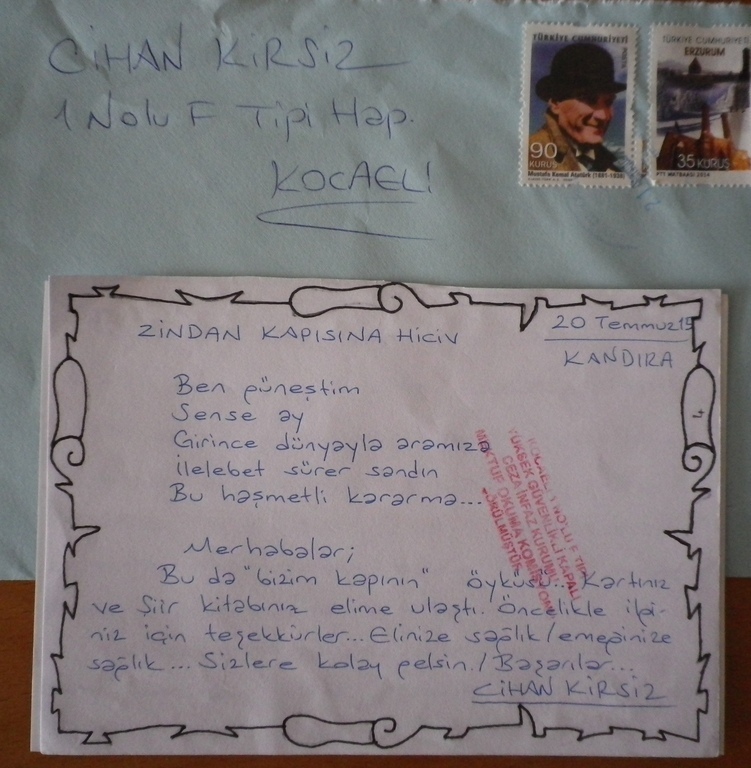 CİHAN KIRSIZ
1 Nolu F Tipi Hap.
KOCAELİ
TÜRKİYE CUMHURİYETİ
90
KURUŞ
Mustafa Kemal Atatürk (1881-1938)
TÜRKİYE CUMHURİYETİ
ERZURUM
35 KURUŞ
PTT MATBAASI 2014
ZİNDAN KAPISINA HİCİV
20 Temmuz 15
KANDIRA
Ben güneştim
Sense ay
Girince dünyayla aramıza
İlelebet sürer sandın
Bu haşmetli kararma...
Merhabalar;
Bu da "bizim kapının" öyküsü... Kartınız
ve Şiir kitabınız elime ulaştı. Öncelikle ilgi-
niz için teşekkürler... Elinize sağlık/emeğinize
sağlık... Sizlere kolay gelsin./Başarılar...
CİHAN KIRSIZ
KOCAELİ 1 NOLU F TİPİ
YÜKSEK GÜVENLİKLİ KAPALI
CEZA İNFAZ KURUMU
MEKTUP OKUMA KOMİSYONU
GÖRÜLMÜŞTÜR